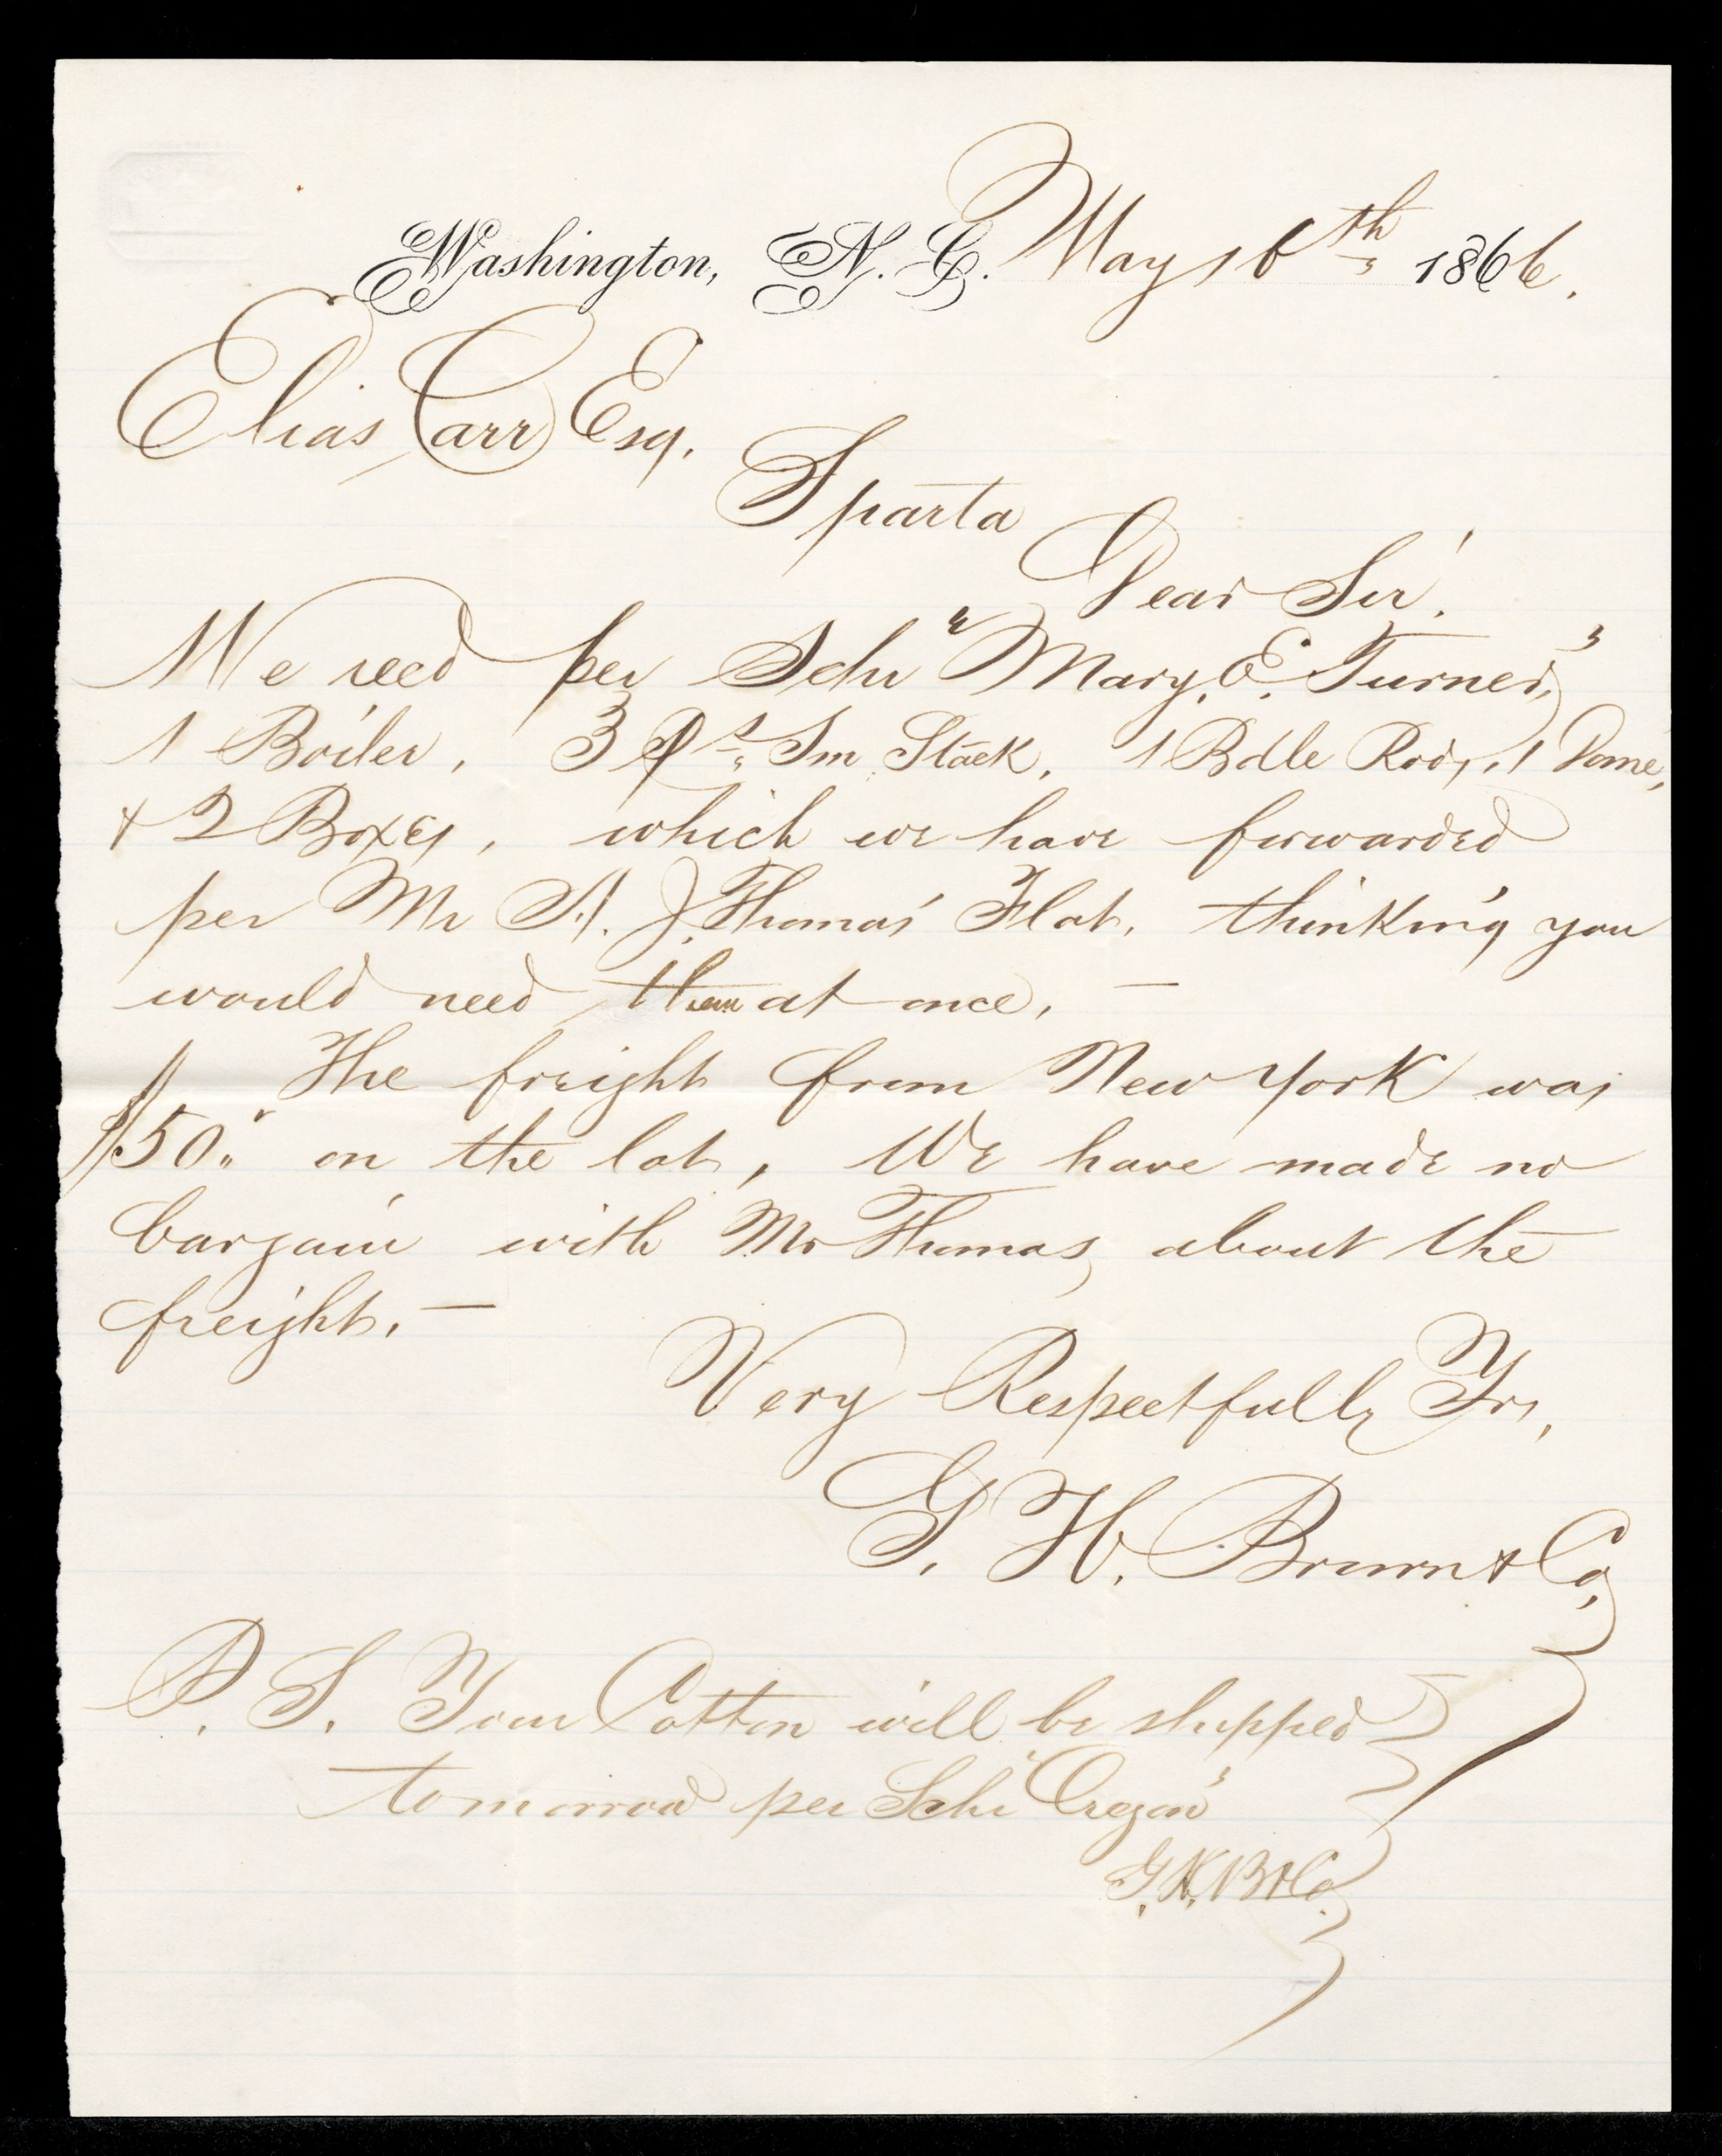 Washington, N. C. May 16th 1866.
Elias Carr Esq.
Sparta
Dear Sir!
We recd per Schr "Mary. E. Turner,"
1 Boiler, 3 Ps Sm Stack, 1 Bdle Rods, 1 Dome,
+ 2 Boxes, which we have forwarded
per Mr A. J. Thomas' Flat, thinking you
would need them at once, —
The freight from New York was
$50" on the lot, We have made no
bargain with Mr Thomas, about the
freight. —
Very Respectfully Yrs,
G. H. Brown + Co,
P. S. Your Cotton will be shipped
tomorrow per Schr "Oregon"
G. H. B + Co.